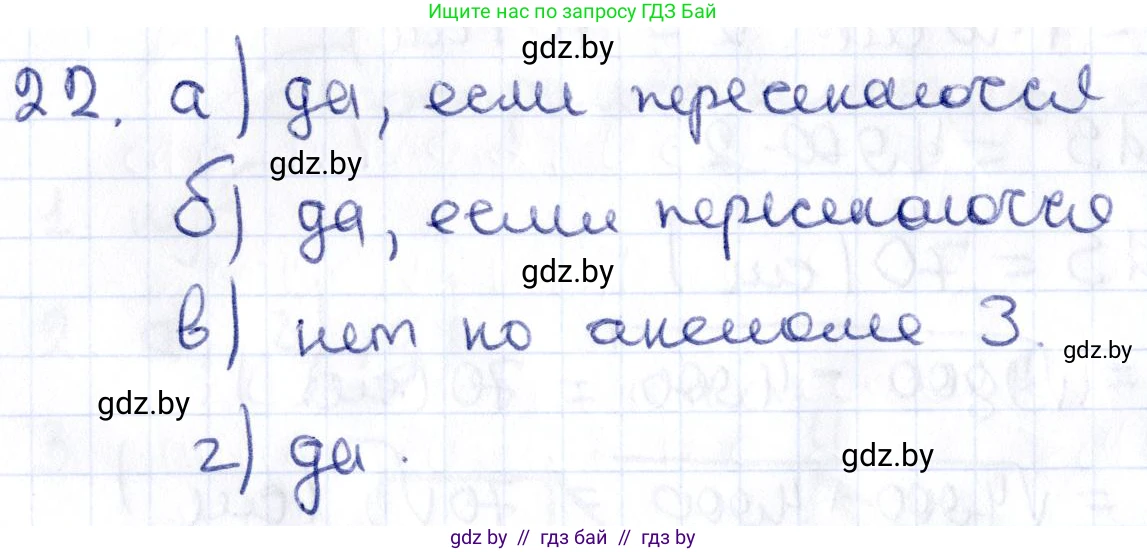 Ищите нас по запросу ГДЗ Бай
gdz.by
22. а) да, если пересекаются
gdz.by
б) да, если пересекаются
gdz.by
в) нет по аксиоме 3.
gdz.by
gdz.by
г) да.
gdz.by
gdz.by // гдз бай // гдз by